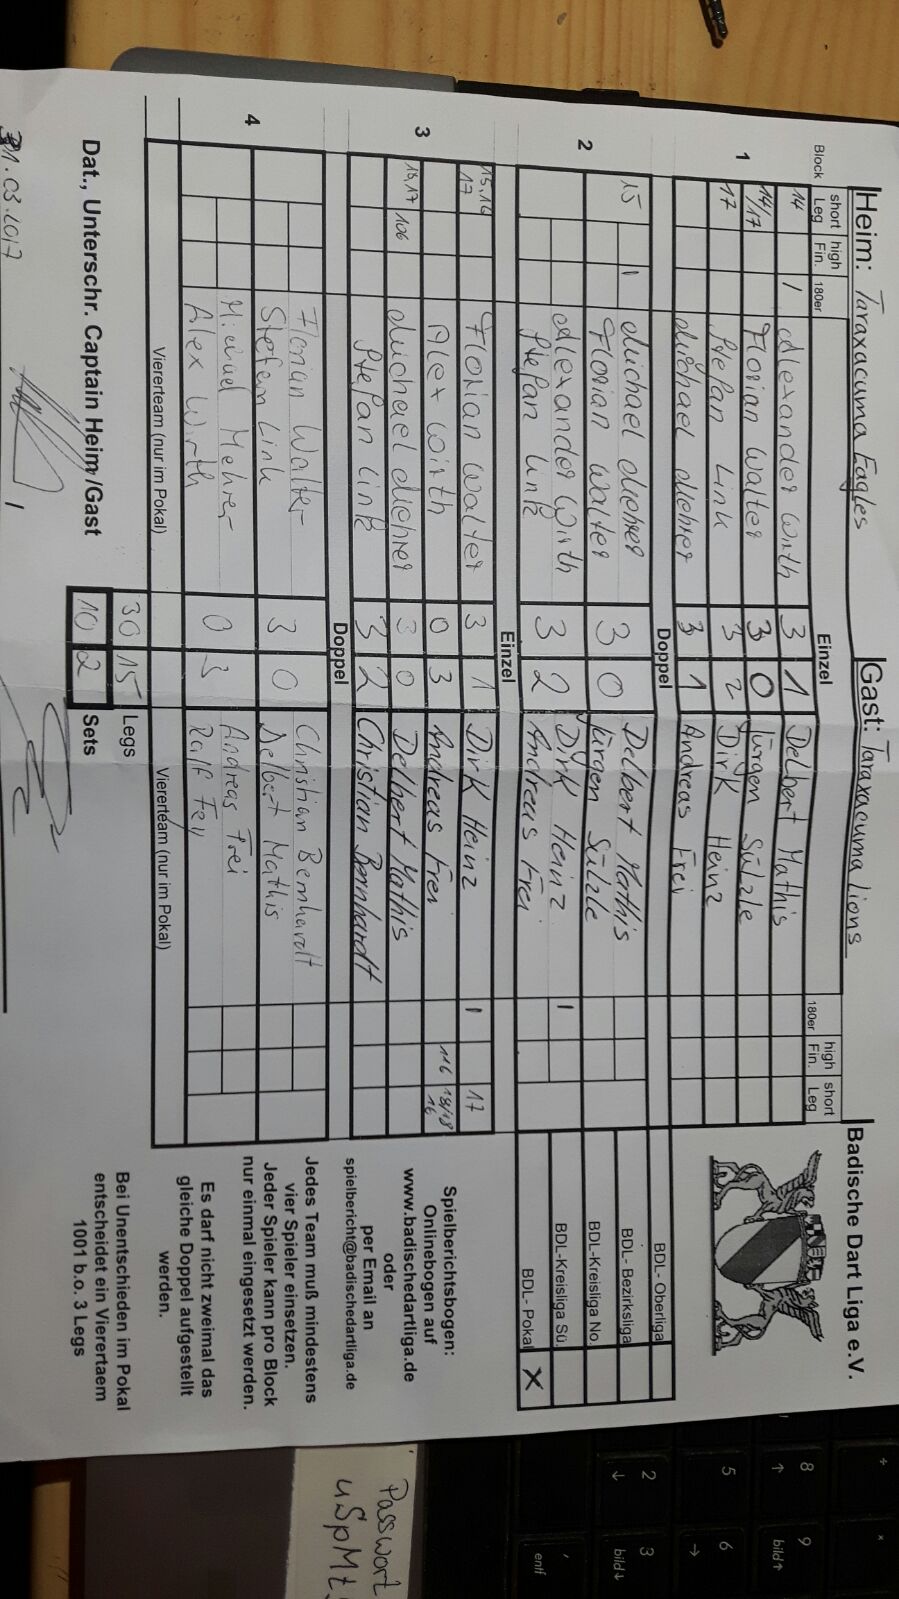 Heim: Taraxacuma Eagles Gast: Taraxacuma Lions Badische Dart Liga e.V.
Block short Leg high Fin. 180er Einzel 180er high Fin. short Leg
1
14 1 Alexander Wirth 3 1 Delbert Mathis
14/17 Florian Walter 3 0 Jürgen Sülzle
17 Stefan Link 3 2 Dirk Heinz
Michael Mehrer 3 1 Andreas Frei
Doppel
2
15 1 Michael Mehrer 3 0 Delbert Mathis
Florian Walter Jürgen Sülzle
Alexander Wirth 3 2 Dirk Heinz 1
Stefan Link Andreas Frei
Einzel
3
15,16 17 Florian Walter 3 1 Dirk Heinz 1 17
Alex Wirth 0 3 Andreas Frei 116 18/18 16
106 Michael Mehrer 3 0 Delbert Mathis
Stefan Link 3 2 Christian Bernhardt
Doppel
4
Florian Walter 3 0 Christian Bernhardt
Stefan Link Delbert Mathis
Michael Mehrer 0 3 Andreas Frei
Alex Wirth Ralf Fey
Viererteam (nur im Pokal) Viererteam (nur im Pokal)
30 15 Legs
10 2 Sets
Dat., Unterschr. Captain Heim/Gast
31.03.2017
BDL- Oberliga
BDL- Bezirksliga
BDL-Kreisliga No.
BDL-Kreisliga Sü.
BDL- Pokal X
Spielberichtsbogen:
Onlinebogen auf
www.badischedartliga.de
oder
per Email an
spielbericht@badischedartliga.de
Jedes Team muß mindestens
vier Spieler einsetzen.
Jeder Spieler kann pro Block
nur einmal eingesetzt werden.
Es darf nicht zweimal das
gleiche Doppel aufgestellt
werden.
Bei Unentschieden im Pokal
entscheidet ein Viertaem
1001 b.o. 3 Legs
÷ *
8 ↑ 9 bild↑
5 6 →
2 ↓ 3 bild↓
, entf
Passwort
uSpMt